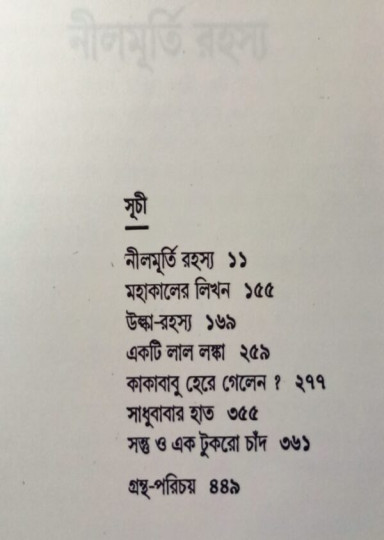 নীলমূর্তি রহস্য
সূচী
নীলমূর্তি রহস্য ১১
মহাকালের লিখন ১৫৫
উল্কা-রহস্য ১৬৯
একটি লাল লঙ্কা ২৫৯
কাকাবাবু হেরে গেলেন ? ২৭৭
সাধুবাবার হাত ৩৫৫
সন্তু ও এক টুকরো চাঁদ ৩৬১
গ্রন্থ-পরিচয় ৪৪৯